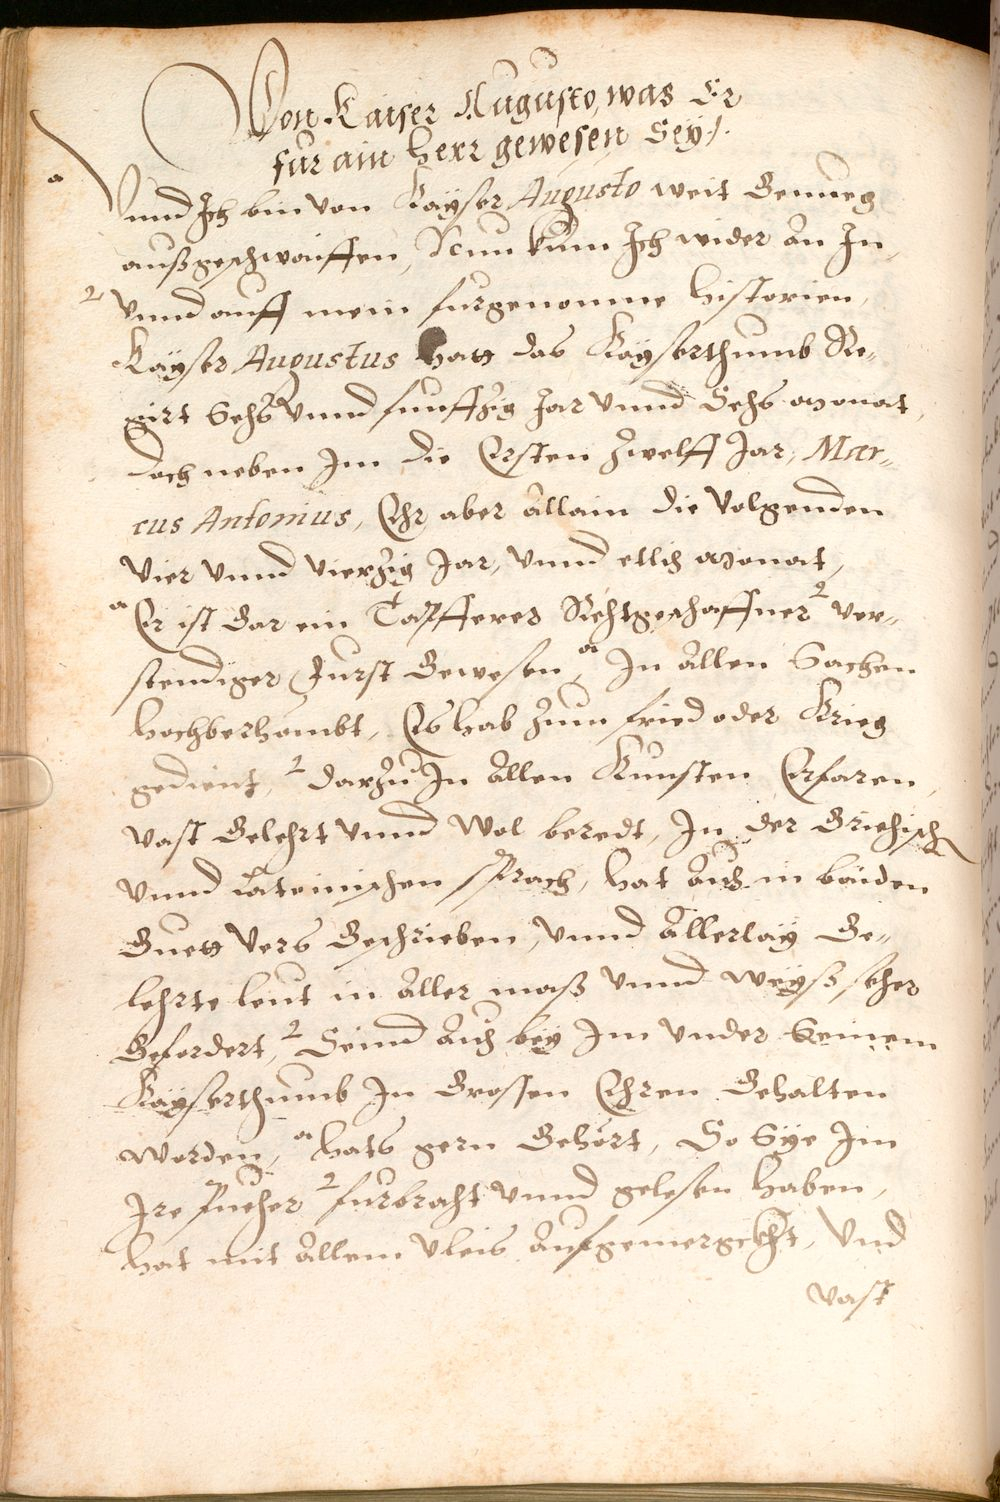 Von Kaiser Augusto, was Er
fur ain herr gewesen Sey/.
a Unnd Ich bin von Kayser Augusto weit Genueg
außgeschwaiffen, Nun kum Ich wider an In,
2 vnnd auff mein furgenomne historien,
Kayser Augustus hatt das Kayserthumb Re„
girt Sechs vnnd funffzig Jar vnnd Sechs monat,
doch neben Im die Ersten zwelff Jar, Mar„
cus Antonius, Ehr aber Allain die Volgenden
Vier vnnd vierzig Jar, vnnd etlich monat,
a Er ist Gar ein Tapfferer Rechtgeschaffner 2 ver„
stendiger Furst Gewesen, a In Allen Sachen
hochberhömbt, Es hab zum fried oder Krieg
gedient, 2 darzu In Allen Kunsten Erfaren,
vast Gelehrt vnnd Wol beredt, In der Griechisch
vnnd Lateinischen sprach, hat Auch in baiden
Guett Vers Geschrieben, vnnd Allerlay Ge„
lehrte leut in Aller maß vnnd weyß seher
Gefordert, 2 Seind Auch bey Im vnder Seinem
Kayserthumb In Grossen Ehren Gehalten
worden, a hats gern Gehört, So Sye Im
Ire Pucher 2 furbracht vnnd gelesen haben,
hat mit Allem vleis Aufgemerckht, Vnd
vast